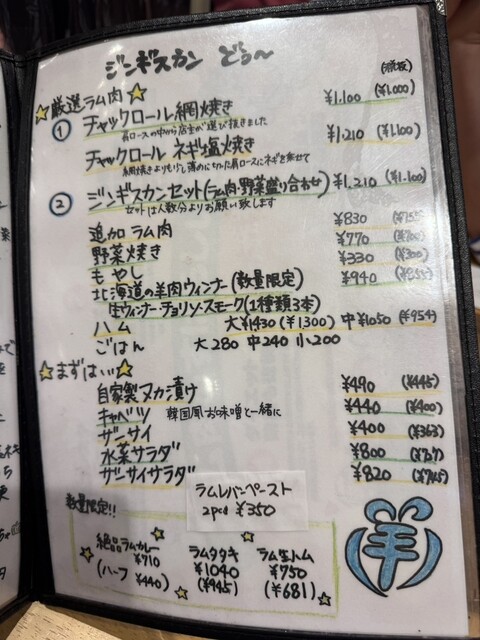 ジンギスカン どぅ〜
(税抜)
☆厳選ラム肉☆
① チャックロール網焼き ¥1,100 (¥1,000)
肩ロースの中から店主が選び抜きました
チャックロール ネギ塩焼き ¥1,210 (¥1,100)
網焼きよりもうし薄めにした肩ロースにネギを乗せて
② ジンギスカンセット(ラム肉・野菜盛り合わせ) ¥1,210 (¥1,100)
セットは人数分よりお願い致します
追加ラム肉 ¥830 (¥755)
野菜焼き ¥770 (¥700)
もやし ¥330 (¥300)
北海道の羊肉ウィンナー(数量限定) ¥940
生ウィンナー・チョリソー・スモーク(1種類3本)
ハム 大¥1430 (¥1,300) 中¥1050 (¥954)
ごはん 大280 中240 小200
☆まずはぃぃ☆
自家製ヌカ漬け ¥490 (¥445)
キャベツ 韓国風お味噌と一緒に ¥440 (¥400)
ザーサイ ¥400 (¥363)
水菜サラダ ¥800 (¥727)
ザーサイサラダ ¥820 (¥745)
ラムレバーペースト
2pcs ¥350
数量限定!!
絶品ラムカレー
¥710
(ハーフ ¥440)
ラムタタキ
¥1040
(¥945)
ラム生ハム
¥750
(¥681)
羊